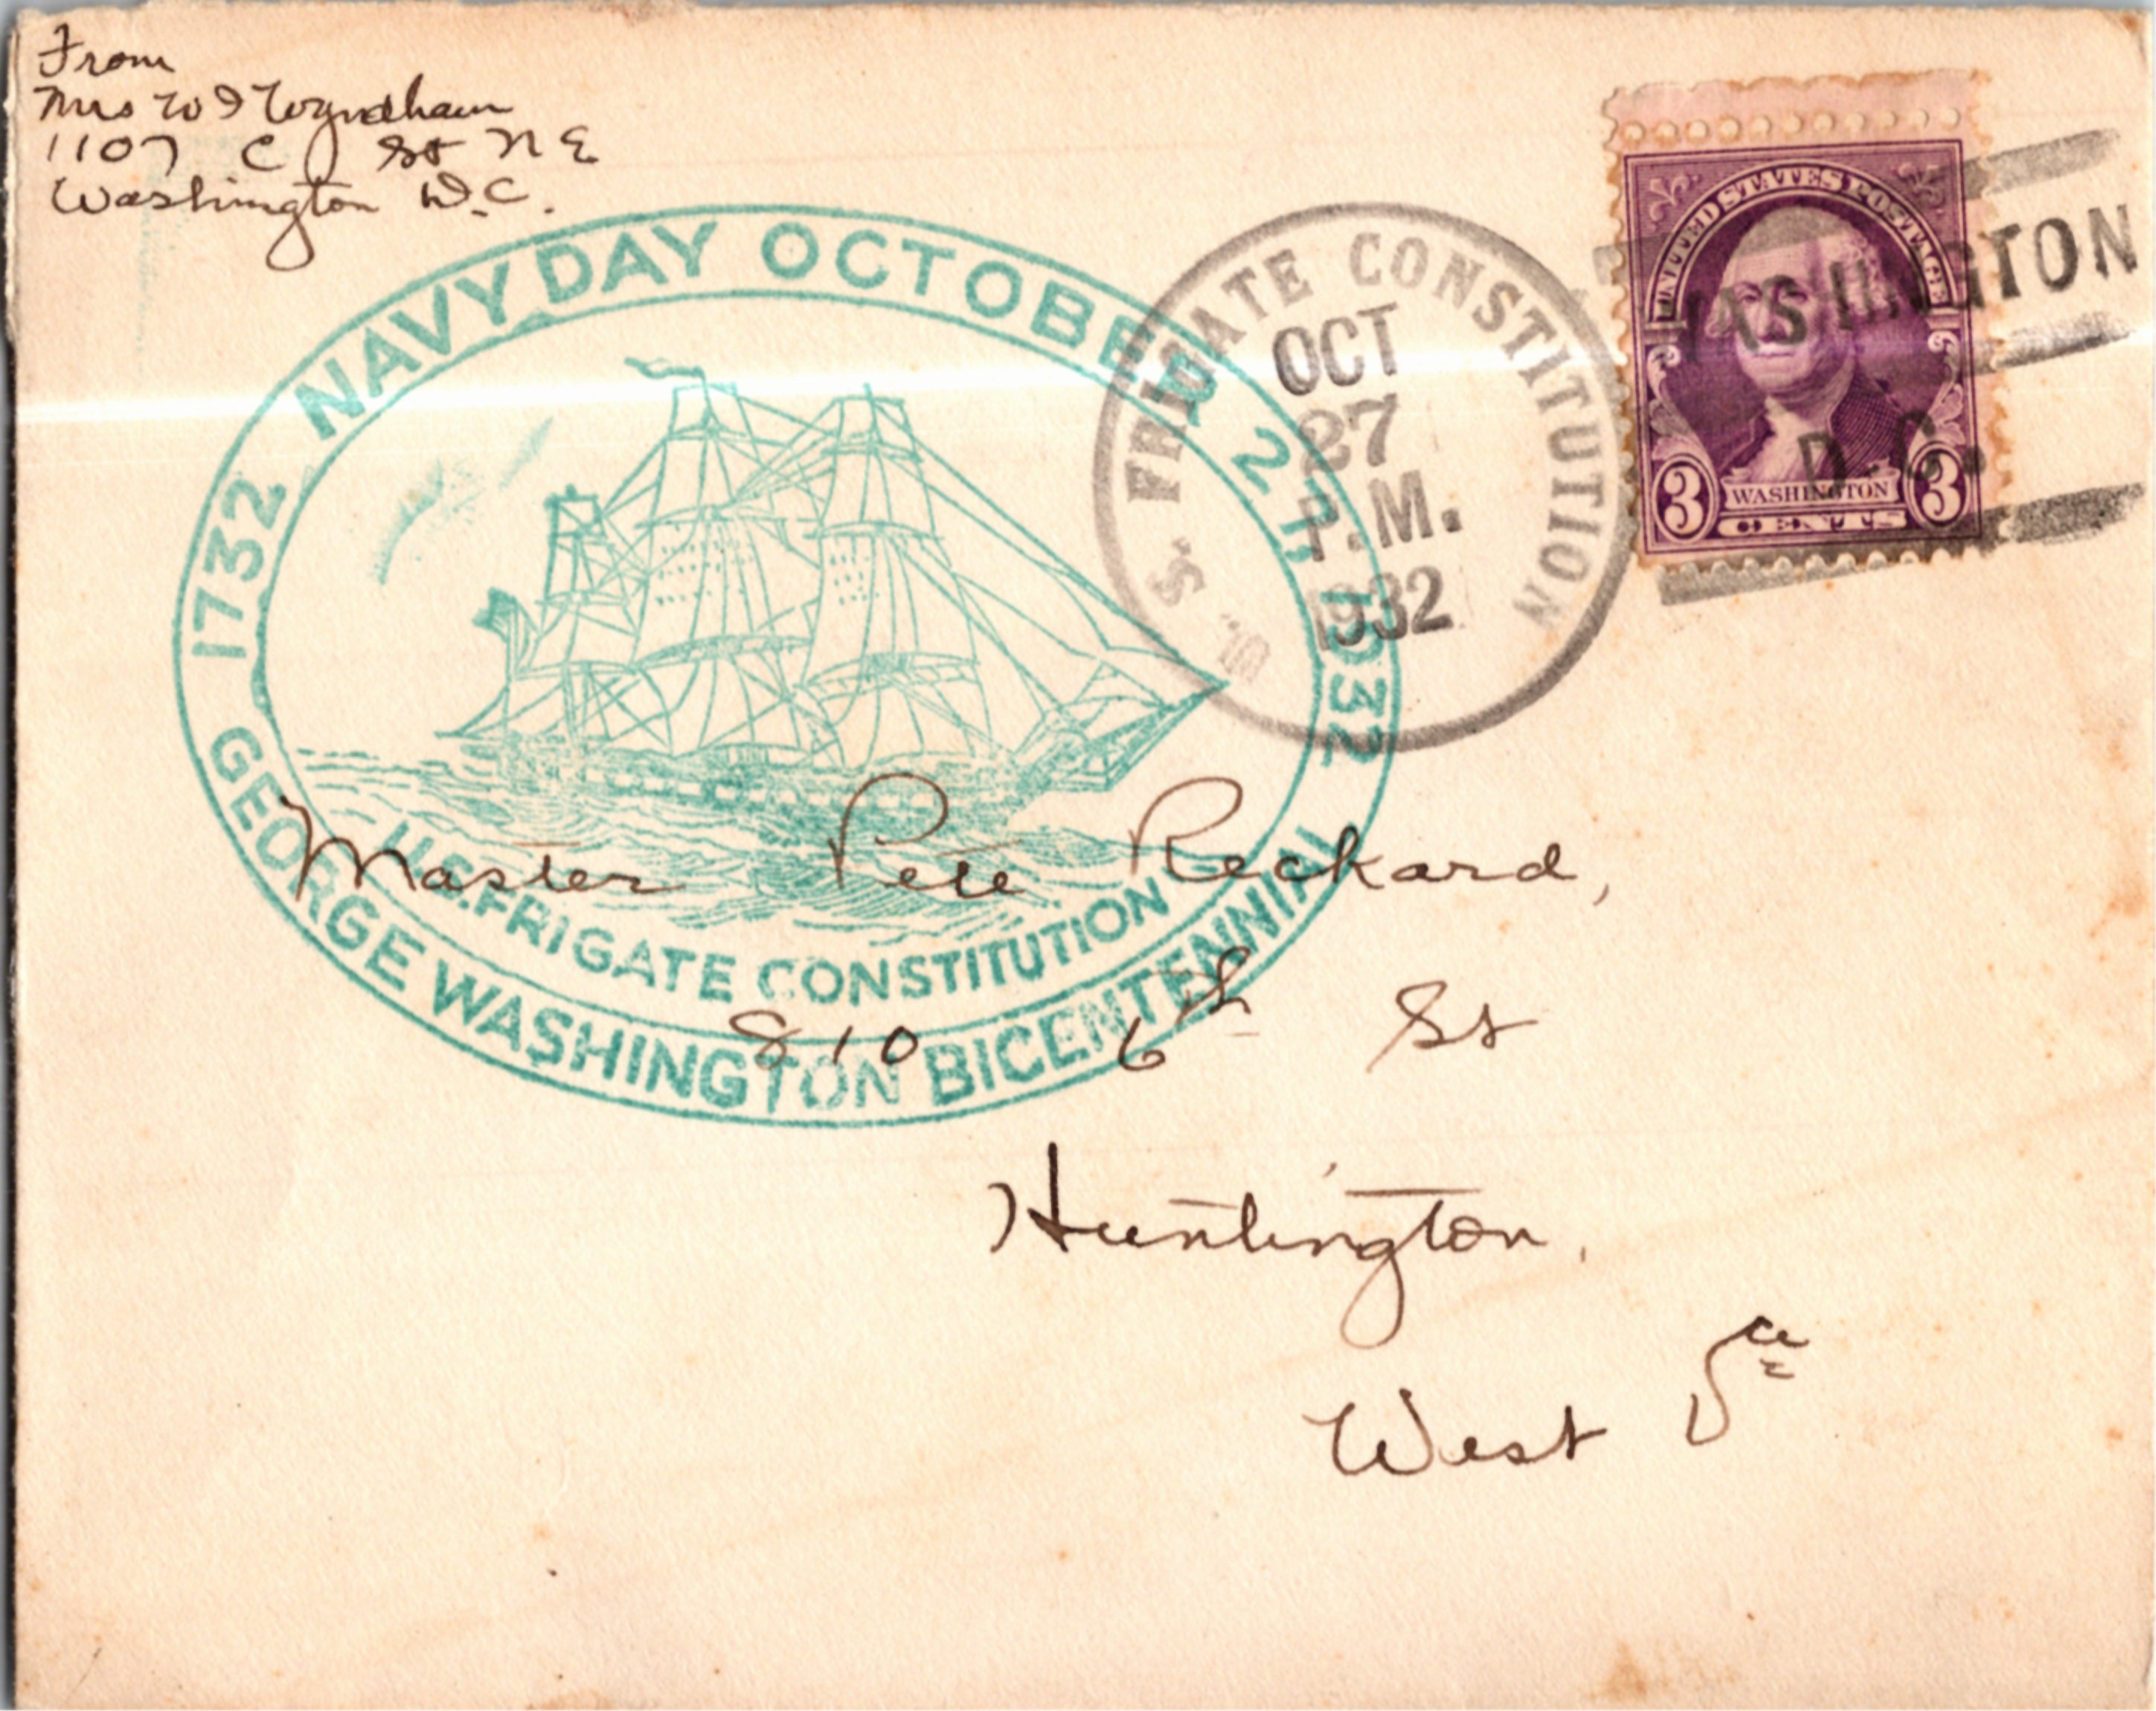 From
Mrs W I Wyndham
1107 C St N E
Washington D.C.
1732 NAVY DAY OCTOBER 27, 1932
U.S. FRIGATE CONSTITUTION
GEORGE WASHINGTON BICENTENNIAL
U. S. FRIGATE CONSTITUTION
OCT
27
P.M.
1932
UNITED STATES POSTAGE
WASHINGTON
3 CENTS 3
WASHINGTON
D.C.
Master Pete Reckard,
810 6th St
Huntington,
West Va